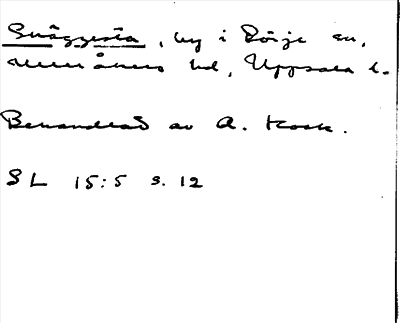 Snåggesta, by i Börje sn,
Ulleråkers hd, Uppsala l.
Behandlad av A. Kock.
SL 15:5 s. 12